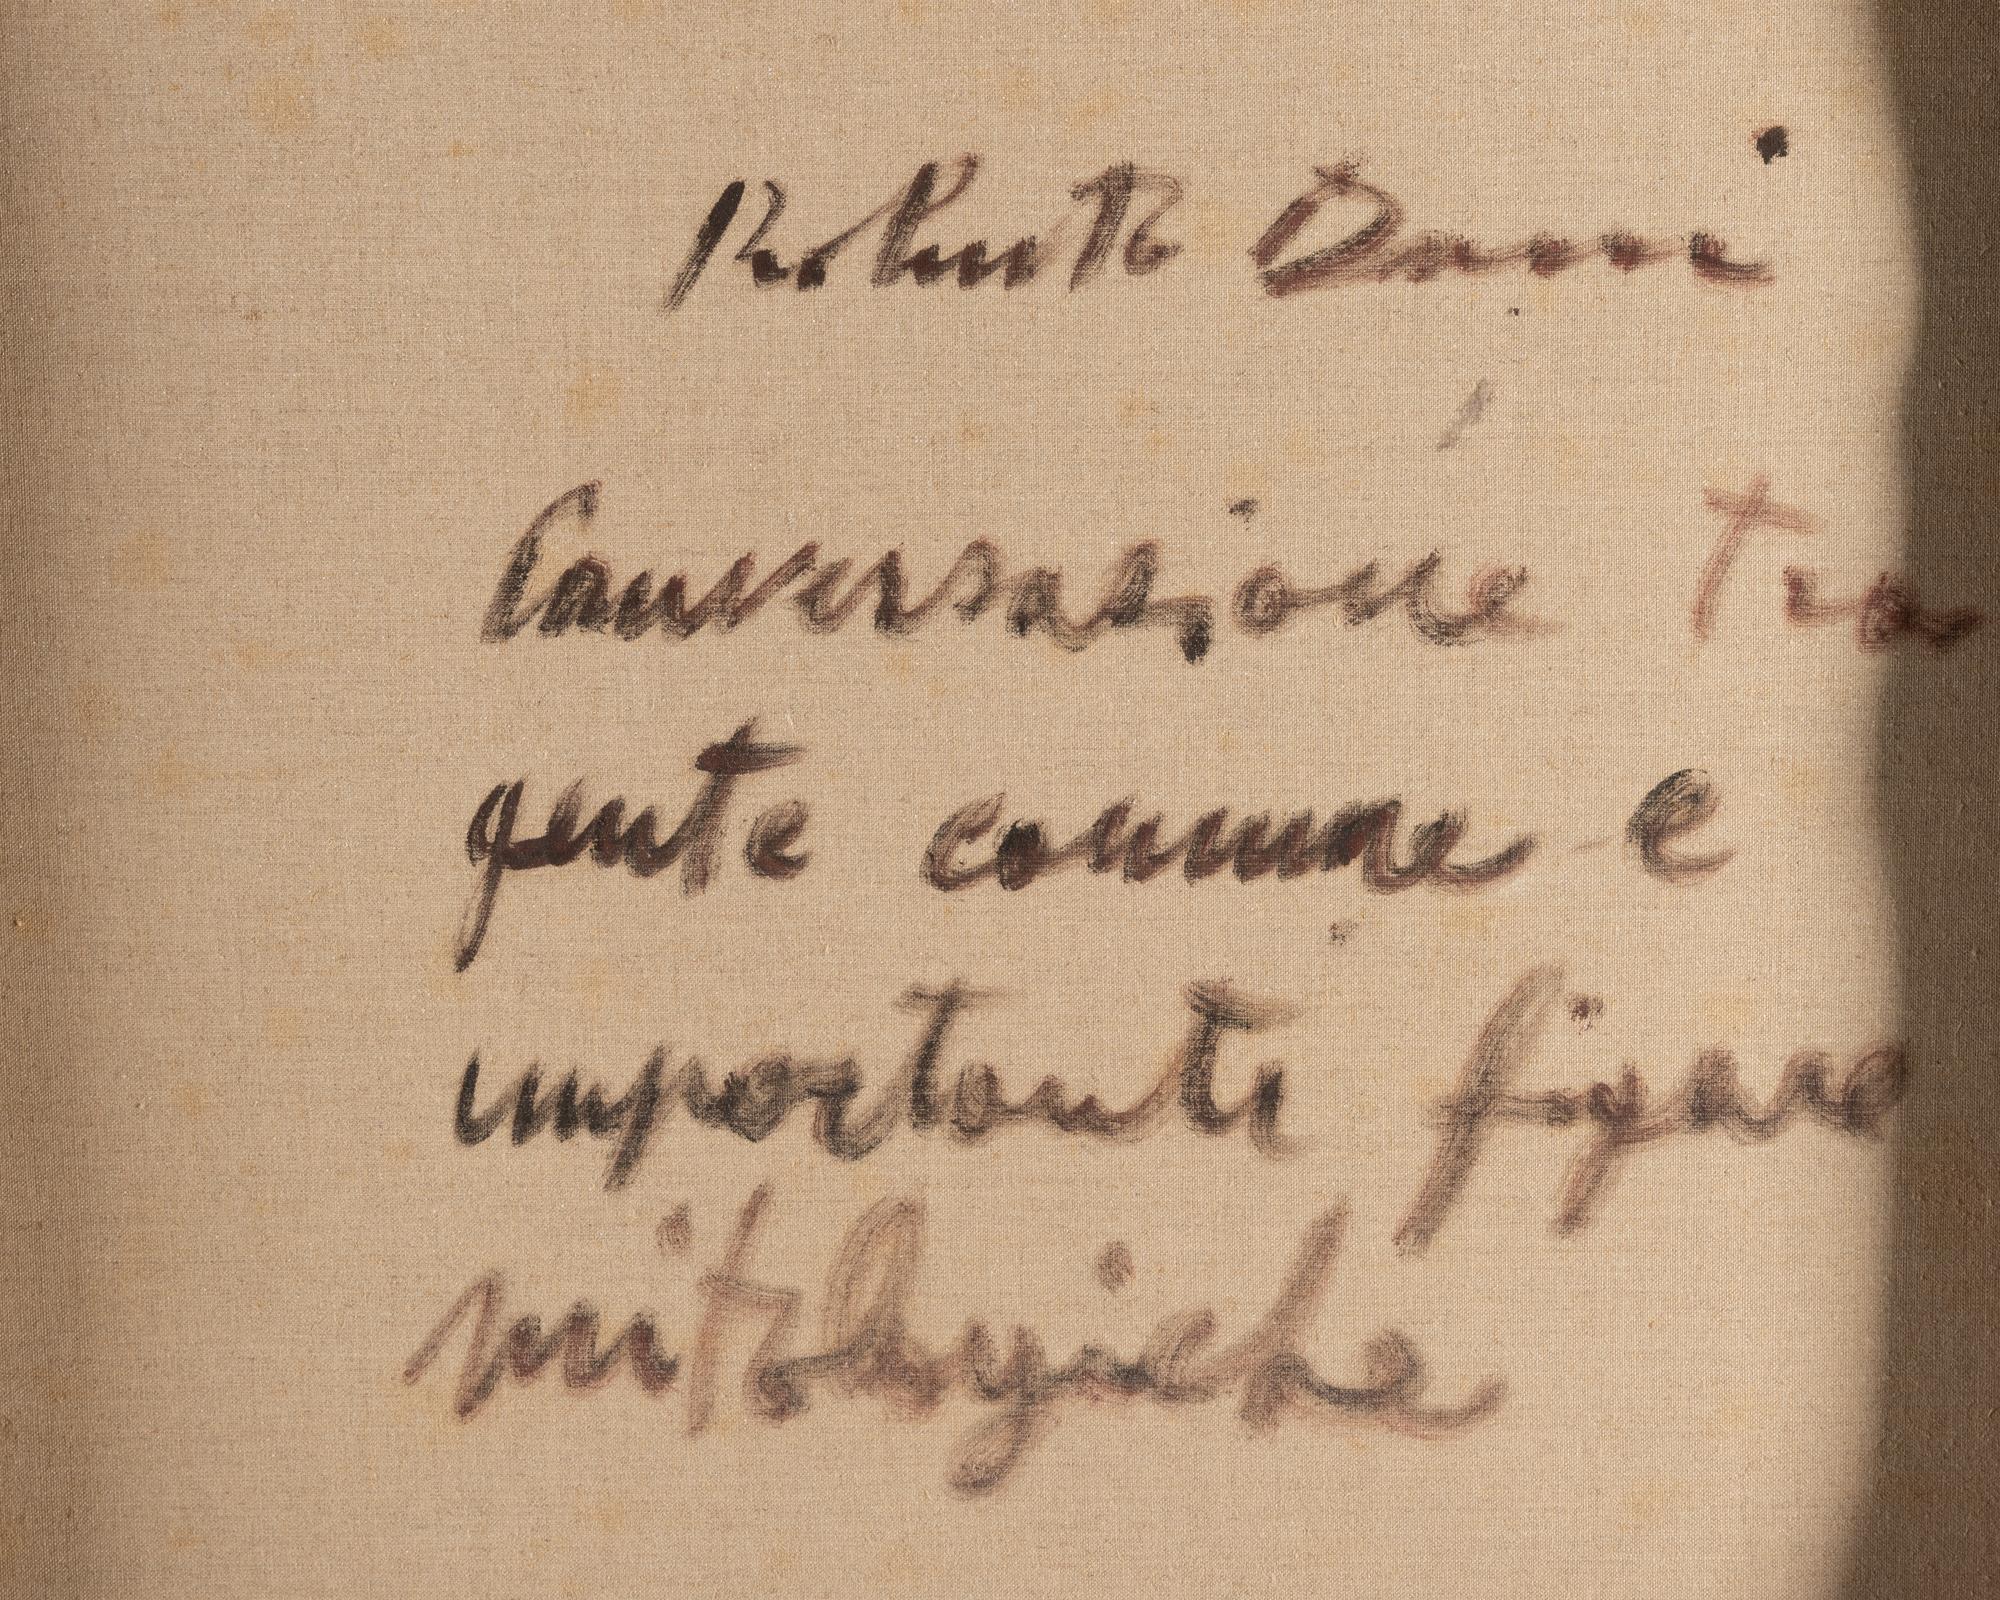 Roberto Dani
Conversazione tra
gente comune e
importanti figure
mitologiche